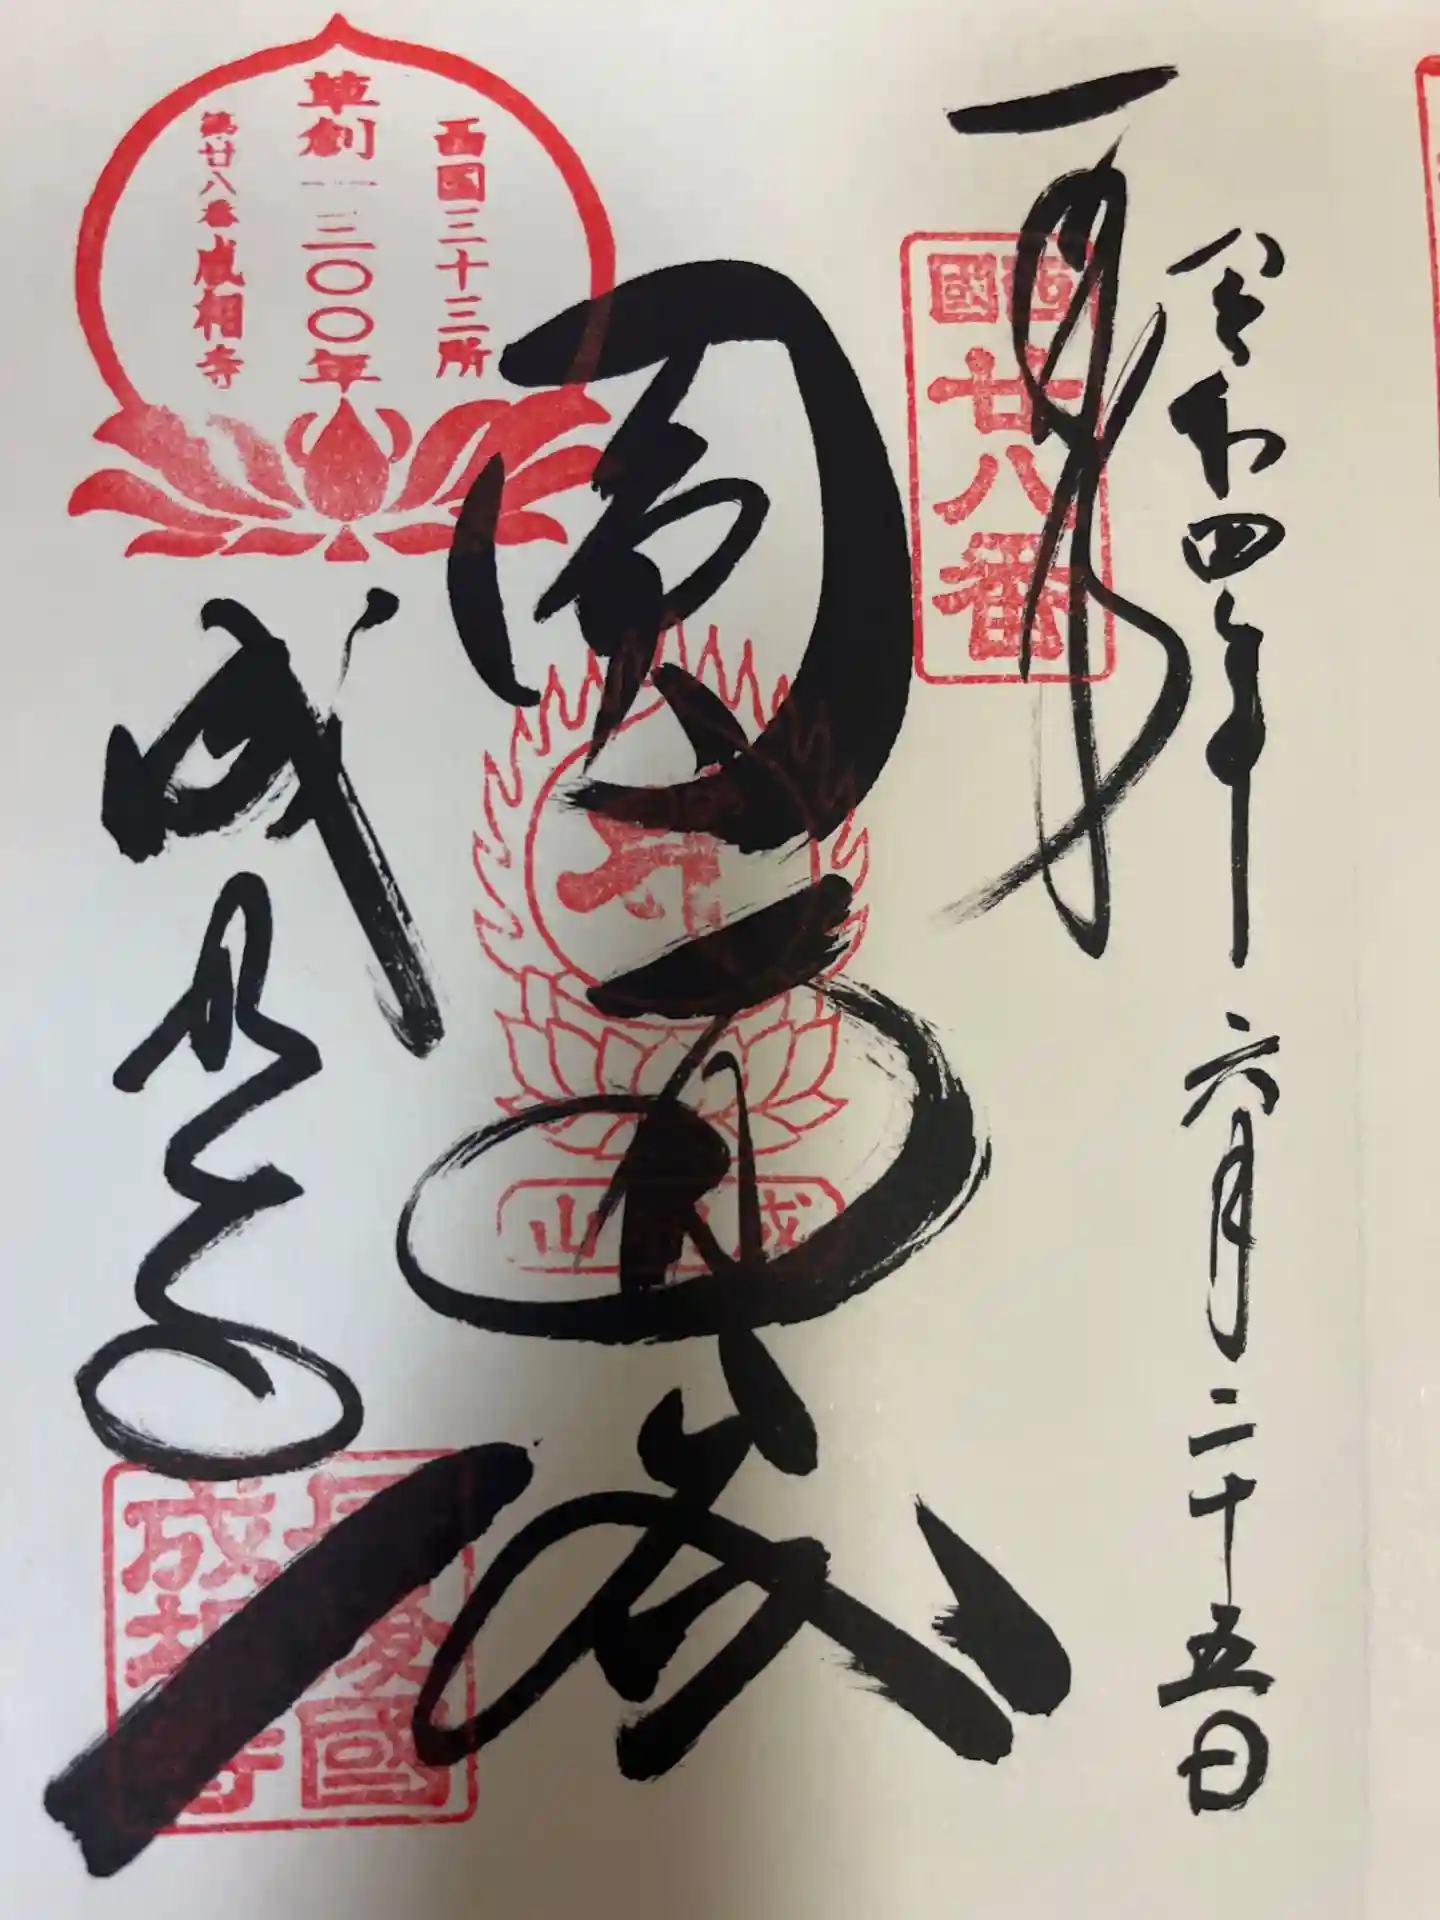 令和四年六月二十五日
西國
廿八番
西国三十三所
草創一三〇〇年
第廿八番 成相寺
圓
成相山
成相寺
丹後國
成相寺